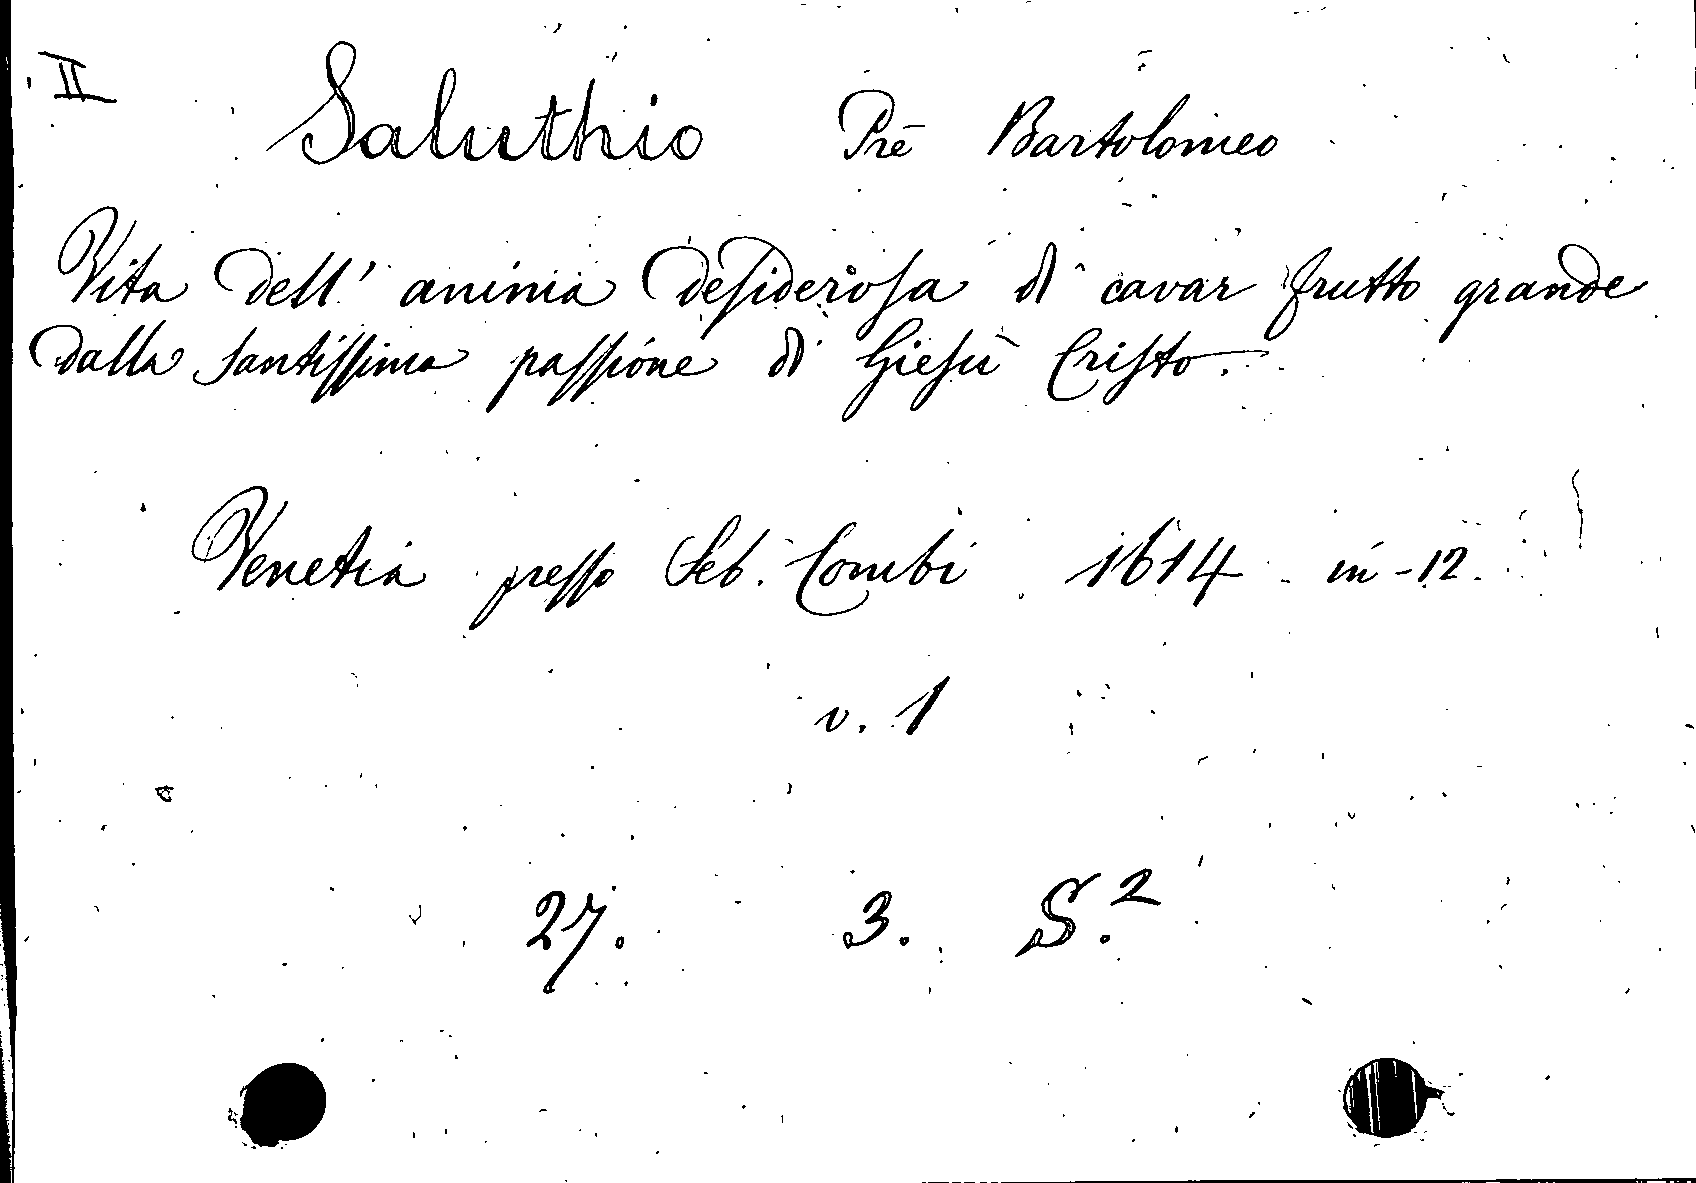 II
Saluthio Pre Bartolomeo
Vita dell' anima desiderosa di cavar frutto grande
dalla santissima passione di Giesù Cristo.
Venetia presso Seb. Combi 1614 in-12.
v. 1
27. 3. S.²